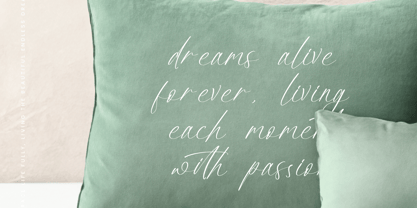 dreams alive
forever, living
each momen
with passion